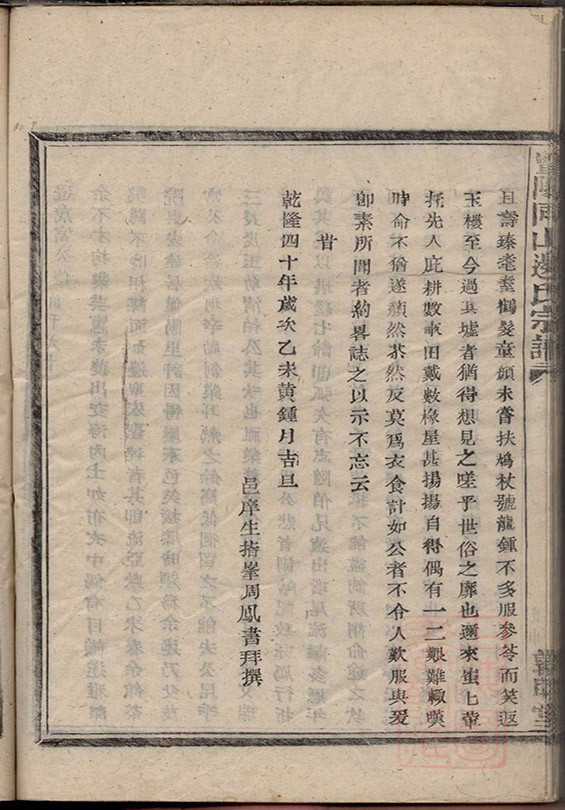 且壽臻耄耋鶴髮童顔未嘗扶鳩杖號龍鍾不多服參苓而笑返
玉樓至今過其墟者猶得想見之嗟乎世俗之靡也邇來蚩七輩
托先人庇耕數畝田戴數椽屋甚揚揚自得偶有一二艱難輒嘆
時命不猶遂蘱然苶然反莫爲衣食計如公者不令人歎服與爰
卽素所聞者約畧誌之以示不忘云
旹
乾隆四十年歲次乙未黃鍾月吉旦
邑庠生搢峯周鳳書拜撰
山邊氏宗譜